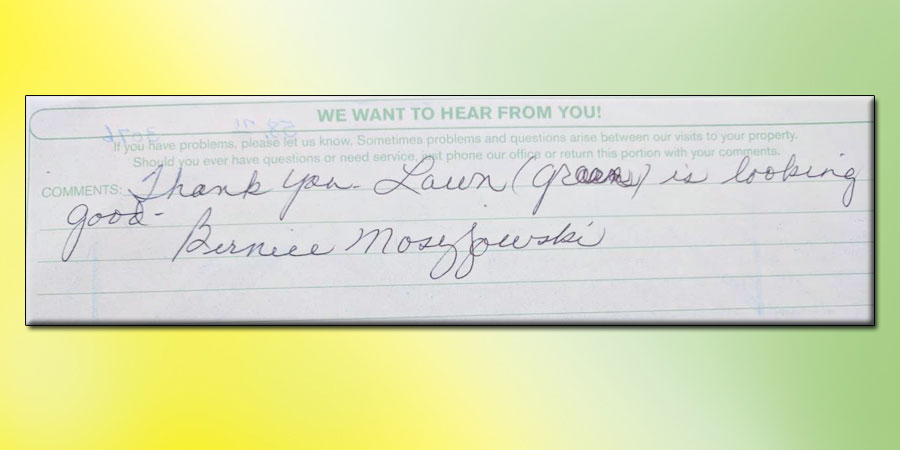 WE WANT TO HEAR FROM YOU!
If you have problems, please let us know. Sometimes problems and questions arise between our visits to your property.
Should you ever have questions or need service, just phone our office or return this portion with your comments.
COMMENTS: Thank you - Lawn (greens) is looking
good -
Bernice